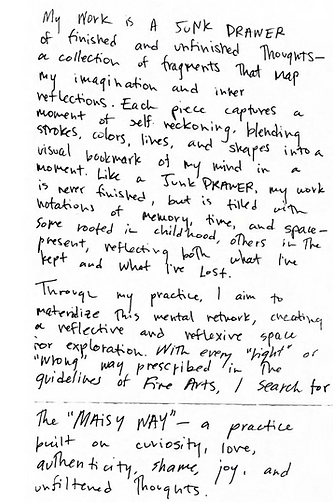 My work is A JUNK DRAWER
of finished and unfinished Thoughts—
a collection of fragments That map
my imagination and inner
reflections. Each piece captures a
moment of self reckoning, blending
strokes, colors, lines, and shapes into a
visual bookmark of my mind in a
moment. Like a Junk DRAWER, my work
is never finished, but is filled with
notations of memory, time, and space—
some rooted in childhood, others in The
present, reflecting both what I've
kept and what I've Lost.
Through my practice, I aim to
materialize This mental network, creating
a reflective and reflexive space
for exploration. With every "right" or
"wrong" way prescribed in The
guidelines of Fine Arts, I search for
The "MAiSy WAY"— a practice
built on curiosity, love,
authenticity, shame, joy, and
unfiltered Thoughts.